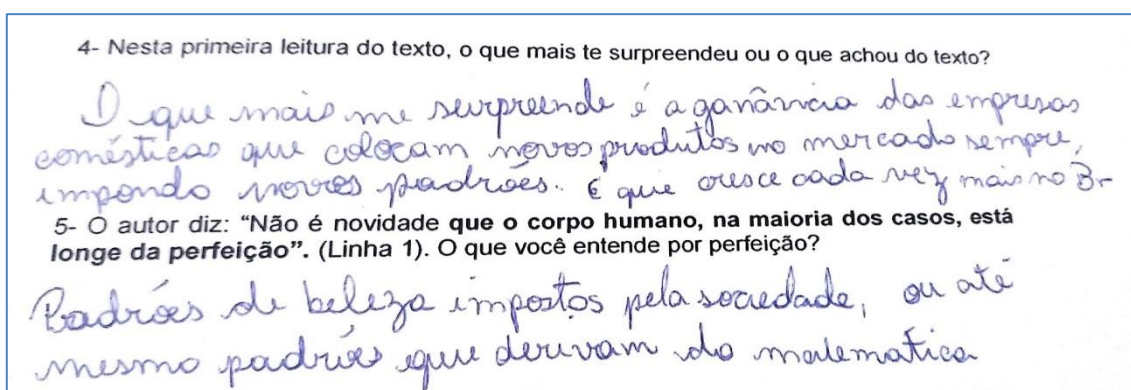 4- Nesta primeira leitura do texto, o que mais te surpreendeu ou o que achou do texto?
O que mais me surpreende é a ganância das empresas
comésticas que colocam novos produtos no mercado sempre,
impondo novos padrões. É que cresce cada vez mais no Br
5- O autor diz: “Não é novidade que o corpo humano, na maioria dos casos, está
longe da perfeição”. (Linha 1). O que você entende por perfeição?
Padrões de beleza impostos pela sociedade, ou até
mesmo padrões que derivam do matematica